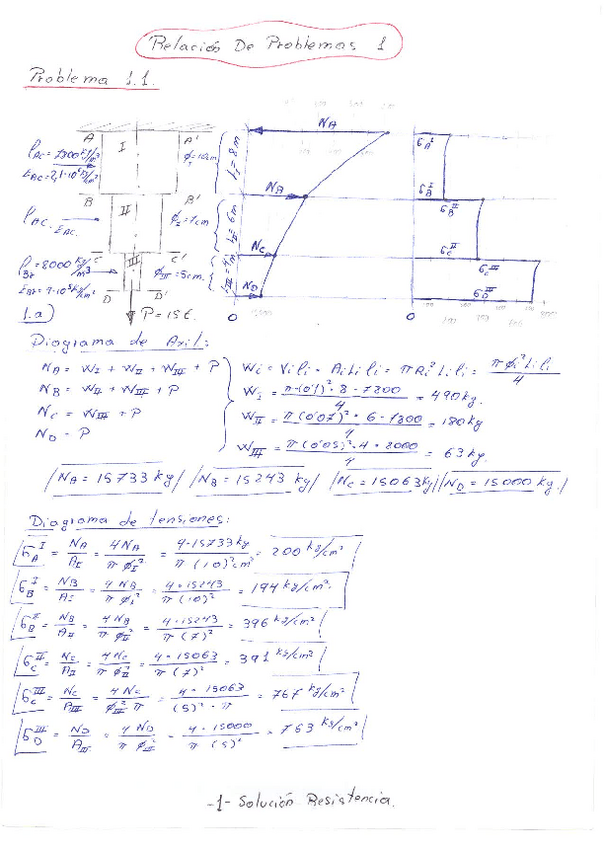 Relación De Problemas 1
Problema 1.1.
A A' I
ρAC = 7800 kg/m³
EAC = 2,1·10⁶ kg/cm²
ϕI = 10cm
LI = 8m
NA
σAI
B B' II
ρAC. EAC.
ϕII = 7cm
LII = 6m
NB
σBI
σBII
C C' III
ρBr = 8000 kg/m³
EBr = 9·10⁵ kg/cm²
ϕIII = 5cm.
LIII = 4m
NC
σCII
σCIII
D D'
ND
σDIII
P = 15 t.
0 0
1.a)
Diagrama de Axil:
NA = WI + WII + WIII + P
NB = WII + WIII + P
NC = WIII + P
ND = P
Wi = Vi ρi = Ai Li ρi = π Ri² Li ρi = π ϕi² Li ρi / 4
WI = π·(0'1)²·8·7800 / 4 = 490 kg.
WII = π(0'07)²·6·7800 / 4 = 180 kg
WIII = π(0'05)²·4·8000 / 4 = 63 kg.
/NA = 15733 kg/ /NB = 15243 kg/ /NC = 15063 kg/ /ND = 15000 kg./
Diagrama de tensiones:
σAI = NA/AI = 4NA/π ϕI² = 4·15733 kg/π (10)² cm² = 200 kg/cm²
σBI = NB/AI = 4 NB/π ϕI² = 4·15243/π (10)² = 194 kg/cm².
σBII = NB/AII = 4 NB/π ϕII² = 4·15243/π (7)² = 396 kg/cm²
σCII = NC/AII = 4 NC/π ϕII² = 4·15063/π (7)² = 391 kg/cm²
σCIII = NC/AIII = 4 NC/ϕIII² π = 4·15063/(5)²·π = 767 kg/cm²
σDIII = ND/AIII = 4 ND/π ϕIII² = 4·15000/π (5)² = 763 kg/cm²
-1- Solución Resistencia.